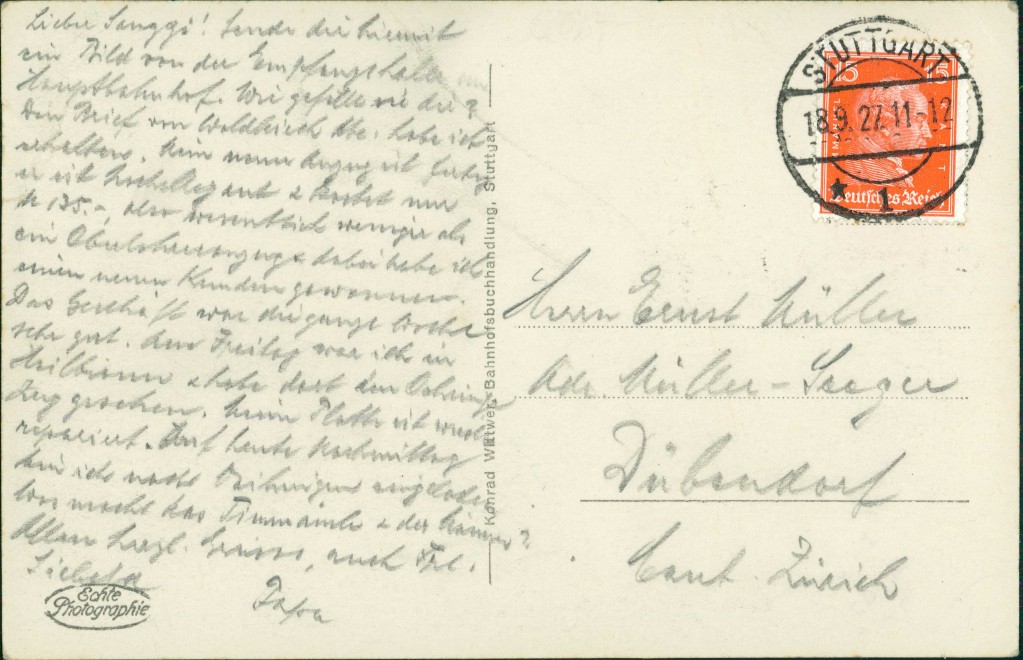 Liebe Sende dir hiermit
ein Bild von der Empfangshalle im
Hauptbahnhof. Wie gefällt sie dir?
Den Brief von habe ich
erhalten. Mein neuer Anzug ist fertig
er ist hochellegant & kostet nur
M 135.-, also wesentlich weniger als
ein & dabei habe ich
einen neuen Kunden gewonnen.
Das Geschäft war die ganze Woche
sehr gut. Am Freitag war ich in
Heilbronn & habe dort den
Zug gesehen. Meine Platte ist wieder
repariert. Auf heute Nachmittag
bin ich nach eingeladen
Was macht das & der Männer?
Allen herzl. Grüsse, auch Frl.
Papa
Echte
Photographie
Konrad Wittwer, Bahnhofsbuchhandlung, Stuttgart
STUTTGART
18.9.27.11-12
★ 1
15 15
Deutsches Reich
Herrn Ernst Müller
Adr. Müller-Seeger
Dübendorf
Cant. Zürich